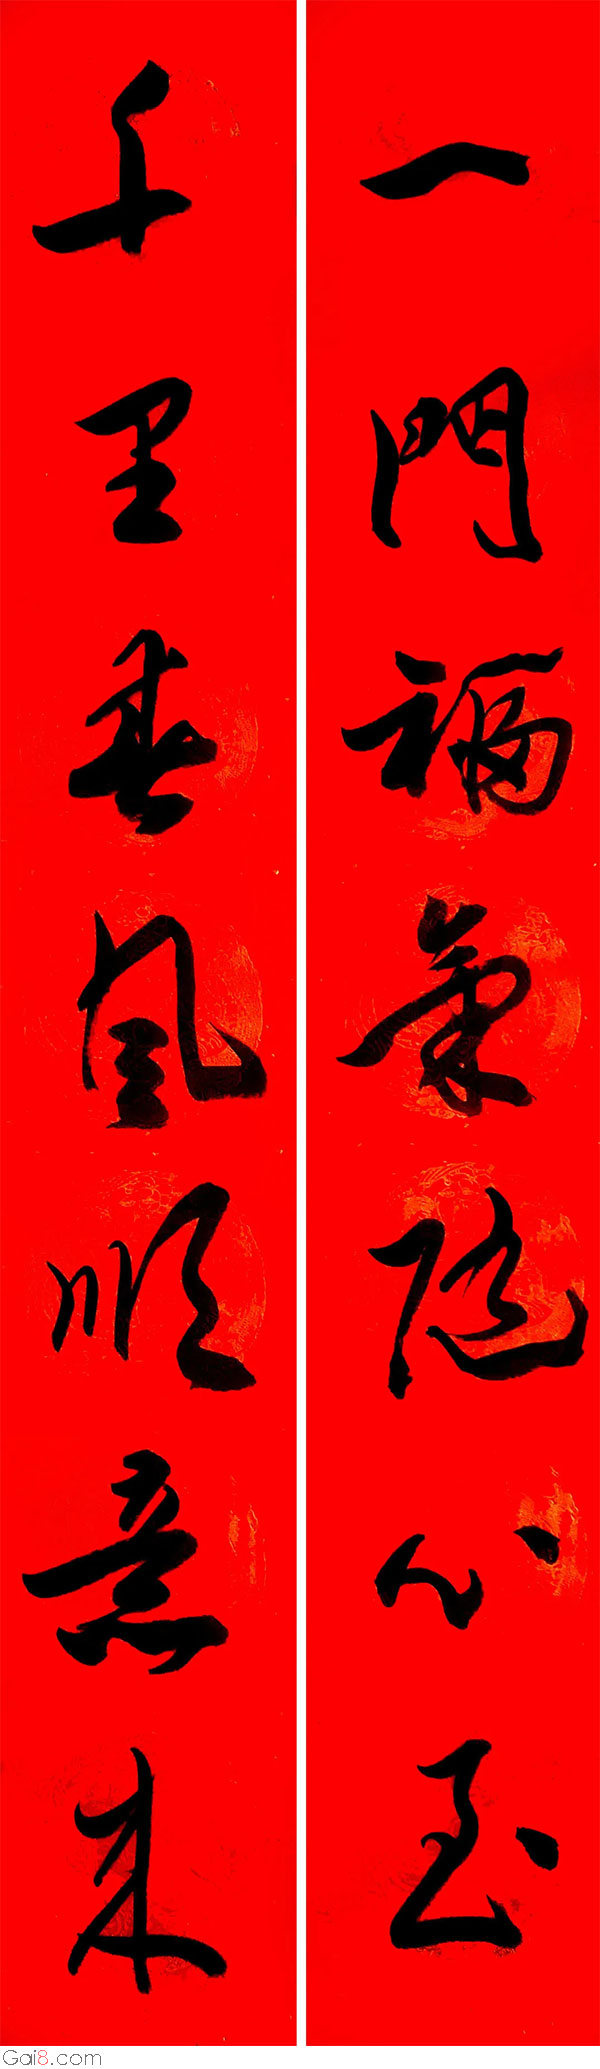 一門福氣隨心至
千里春風順意來
Gai8.com